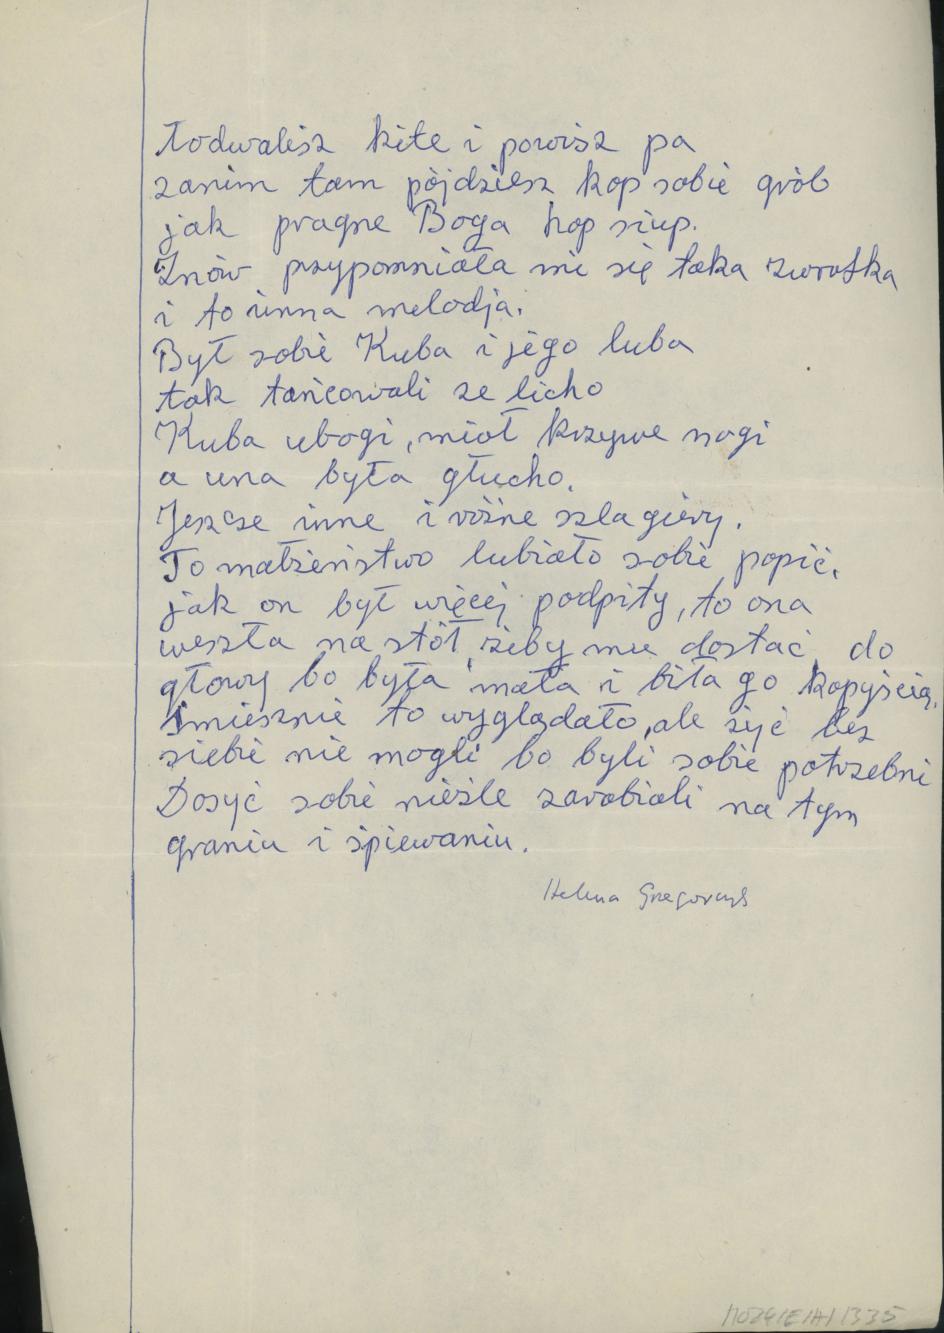 Łodwalisz kite i powisz pa
zanim tam pòjdziesz kop sobie grób
jak pragne Boga hop siup.
Znów przypomniała mi się taka zwrotka
i to inna melodja.
Był sobie Kuba i jego luba
tak tańcowali ze licho
Kuba ubogi, mioł krzywe nogi
a una była głucho.
Jeszcze inne i różne szlagiery.
To małżeństwo lubiało sobie popić,
jak on był więcej podpity, to ona
weszła na stół, żeby mu dostać do
głowy bo była mała i biła go kopyścią.
Śmiesznie to wyglądało, ale żyć bez
siebie nie mogli bo byli sobie potrzebni
Dosyć sobie nieźle zarobiali na tym
graniu i śpiewaniu.
Helena Gregorczyk